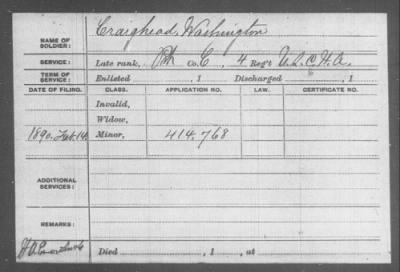 NAME OF SOLDIER: Craighead, Washington
SERVICE: Late rank, Co. C, 4 Reg't U.S.C.H.A.
TERM OF SERVICE: Enlisted , 1 Discharged , 1
DATE OF FILING. CLASS. APPLICATION NO. LAW. CERTIFICATE NO.
Invalid,
Widow,
1890. Feb. 14 Minor, 414.768
ADDITIONAL SERVICES:
REMARKS:
Died , 1 , at